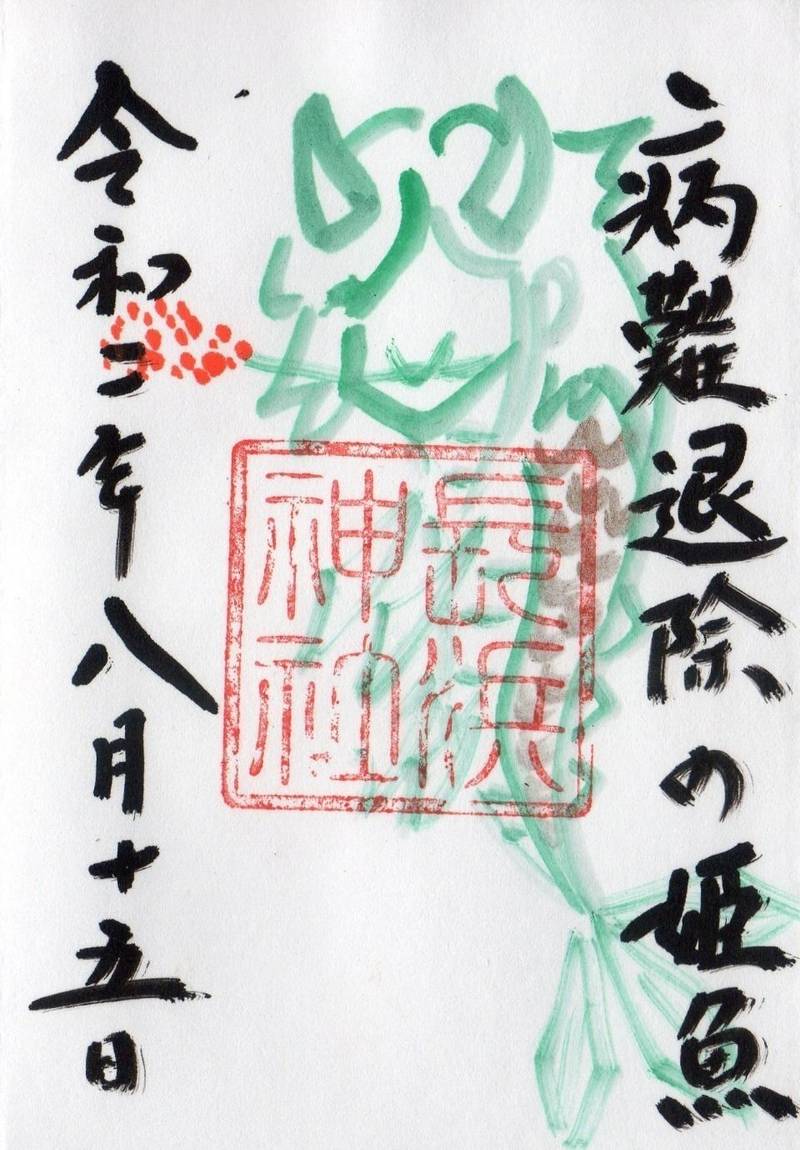 病難退除の姫魚
長浜
神社
令和二年八月十五日